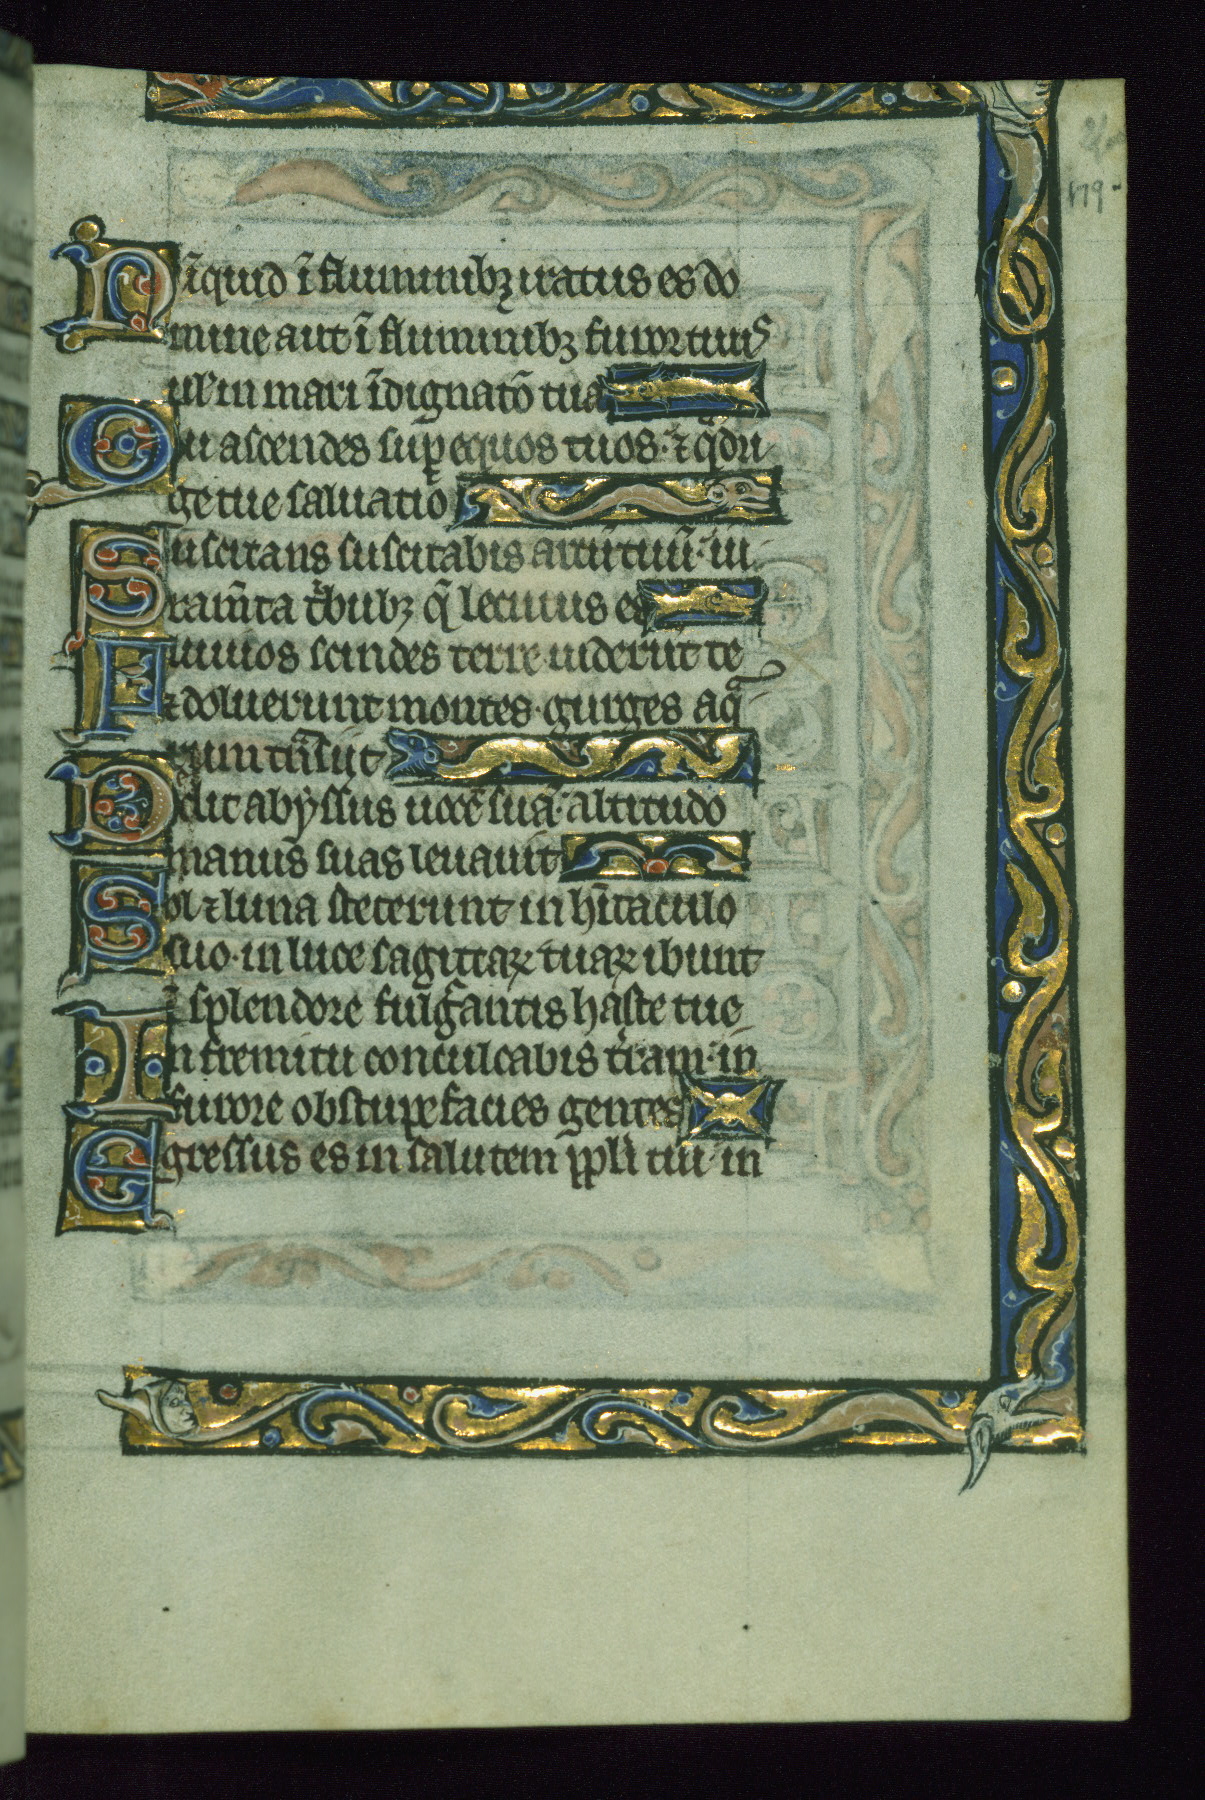 Nūquid ī fluminibꝫ iratus es do
mine aut ī fluminibꝫ furor tuus
uł in mari īdignatō tua
Qui ascendes suꝑ equos tuos· ⁊ q̄dri
ge tue saluatio
Suscitans suscitabis arcū tuū· iu
ramīta tͥbubꝫ q̄ lecutus es
Fluuios scindes terre uiderūt te
⁊ doluerunt montes· gurges aqͣ
rum tͣnsiit
Dedit abyssus uocē suā· altitudo
manus suas leuauit
Sol ⁊ luna stecerunt in hītaculo
suo· in luce sagittaꝝ tuaꝝ ibunt
ī splendore fulgͣantis haste tue
In fremitu conculcabis tͬram· in
furore obstupefacies gentes
Egressus es in salutem ppli tui· in
179